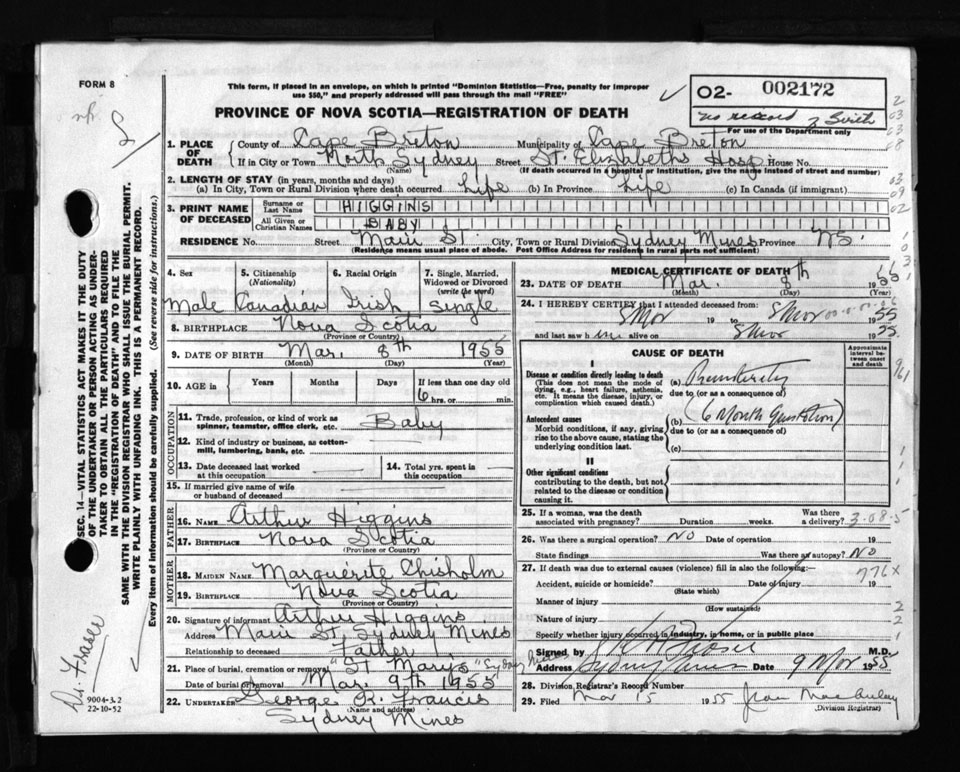 FORM 8
This form, if placed in an envelope, on which is printed "Dominion Statistics—Free, penalty for improper
use $50," and properly addressed will pass through the mail "FREE"
O2- 002172
no record of birth
For use of the Department only
PROVINCE OF NOVA SCOTIA—REGISTRATION OF DEATH
SEC. 14—VITAL STATISTICS ACT MAKES IT THE DUTY
OF THE UNDERTAKER OR PERSON ACTING AS UNDER-
TAKER TO OBTAIN ALL THE PARTICULARS REQUIRED
IN THE "REGISTRATION OF DEATH" AND TO FILE THE
SAME WITH THE DIVISION REGISTRAR WHO SHALL ISSUE THE BURIAL PERMIT.
WRITE PLAINLY WITH UNFADING INK. THIS IS A PERMANENT RECORD.
Every item of information should be carefully supplied. (See reverse side for instructions.)
Dr. Fraser
9004-3.2
22-10-52
1. PLACE OF DEATH
County of Cape Breton Municipality of Cape Breton
If in City or Town North Sydney Street St. Elizabeth's Hosp House No.
(Name) (If death occurred in a hospital or institution, give the name instead of street and number)
2. LENGTH OF STAY (in years, months and days)
(a) In City, Town or Rural Division where death occurred Life (b) In Province Life (c) In Canada (if immigrant)
3. PRINT NAME OF DECEASED
Surname or Last Name HIGGINS
All Given or Christian Names BABY
RESIDENCE No. Street Main St. City, Town or Rural Division Sydney Mines Province NS.
(Residence means usual place of abode. Post Office Address for residents in rural parts not sufficient)
4. Sex 5. Citizenship (Nationality) 6. Racial Origin 7. Single, Married, Widowed or Divorced (write the word)
Male Canadian Irish Single
8. BIRTHPLACE Nova Scotia
(Province or Country)
9. DATE OF BIRTH Mar. 8th 1955
(Month) (Day) (Year)
10. AGE in Years Months Days If less than one day old
6 hrs. or min.
OCCUPATION
11. Trade, profession, or kind of work as
spinner, teamster, office clerk, etc. Baby
12. Kind of industry or business, as cotton-
mill, lumbering, bank, etc.
13. Date deceased last worked at this occupation 14. Total yrs. spent in this occupation
15. If married give name of wife
or husband of deceased
FATHER
16. NAME Arthur Higgins
17. BIRTHPLACE Nova Scotia
(Province or Country)
MOTHER
18. MAIDEN NAME Marguerite Chisholm
19. BIRTHPLACE Nova Scotia
(Province or Country)
20. Signature of informant Arthur Higgins
Address Main St. Sydney Mines
Relationship to deceased Father
21. Place of burial, cremation or removal "St. Mary's" Sydney Mines
Date of burial or removal Mar. 9th 1955
22. UNDERTAKER George R. Francis
(Name and address)
Sydney Mines
MEDICAL CERTIFICATE OF DEATH
23. DATE OF DEATH Mar. 8th 1955
(Month) (Day) (Year)
24. I HEREBY CERTIFY that I attended deceased from:
8 Mar 19 to 8 Mar 1955
and last saw h im alive on 8 Mar 1955.
CAUSE OF DEATH
Approximate interval between onset and death
I
Disease or condition directly leading to death
(This does not mean the mode of
dying, e.g., heart failure, asthenia,
etc. It means the disease, injury, or
complication which caused death.)
(a) Prematurity
due to (or as a consequence of)
Antecedent causes
Morbid conditions, if any, giving
rise to the above cause, stating the
underlying condition last.
(b) (6 Month Gestation)
due to (or as a consequence of)
(c)
II
Other significant conditions
contributing to the death, but not
related to the disease or condition
causing it.
25. If a woman, was the death Was there
associated with pregnancy? Duration weeks. a delivery?
26. Was there a surgical operation? NO Date of operation 19
State findings Was there an autopsy? NO
27. If death was due to external causes (violence) fill in also the following:—
776X
Accident, suicide or homicide? Date of injury 19
(State which)
Manner of injury
(How sustained)
Nature of injury
Specify whether injury occurred in industry, in home, or in public place
Signed by Fraser M.D.
Address Sydney Mines Date 9 Mar 1955
28. Division Registrar's Record Number
29. Filed Mar 1955 Jean MacAulay
(Division Registrar)